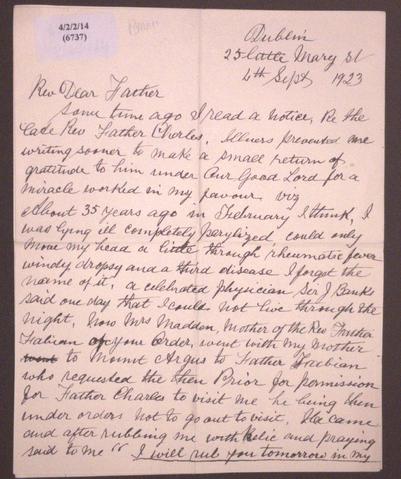 4/2/2/14
(6737)
Dublin
25 little Mary St
4th Sept 1923
Rev Dear Father
Some time ago I read a notice, Re the
late Rev Father Charles. Illness prevented me
writing sooner to make a small return of
gratitude to him under Our Good Lord for a
miracle worked in my favour. viz
About 35 years ago in February I think, I
was lying ill completely parylized could only
move my head a little through rheumatic fever
windy dropsy and a third disease I forgot the
name of it. a celebrated physician Sir J Banks
said one day that I could not live through the
night. Now Mrs Madden, Mother of the Rev Father
Fabian of your Order, went with my Mother
went to Mount Argus to Father Fabian
who requested the then Prior for permission
for Father Charles to visit me he being then
under orders not to go out to visit. He came
and after rubbing me with Relic and praying
said to me "I will rub you tomorrow in my